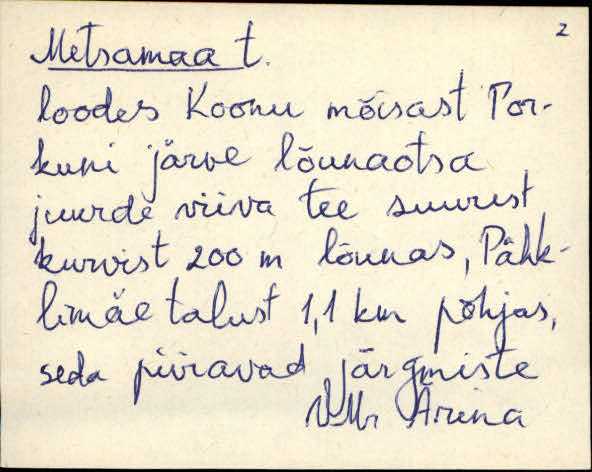 2
Metsamaa t.
loodes Koonu mõisast Por-
kuni järve lõunaotsa
juurde viiva tee suurest
kurvist 200 m lõunas, Pähk-
limäe talust 1,1 km põhjas,
seda piiravad järgmiste
VMr Ärina